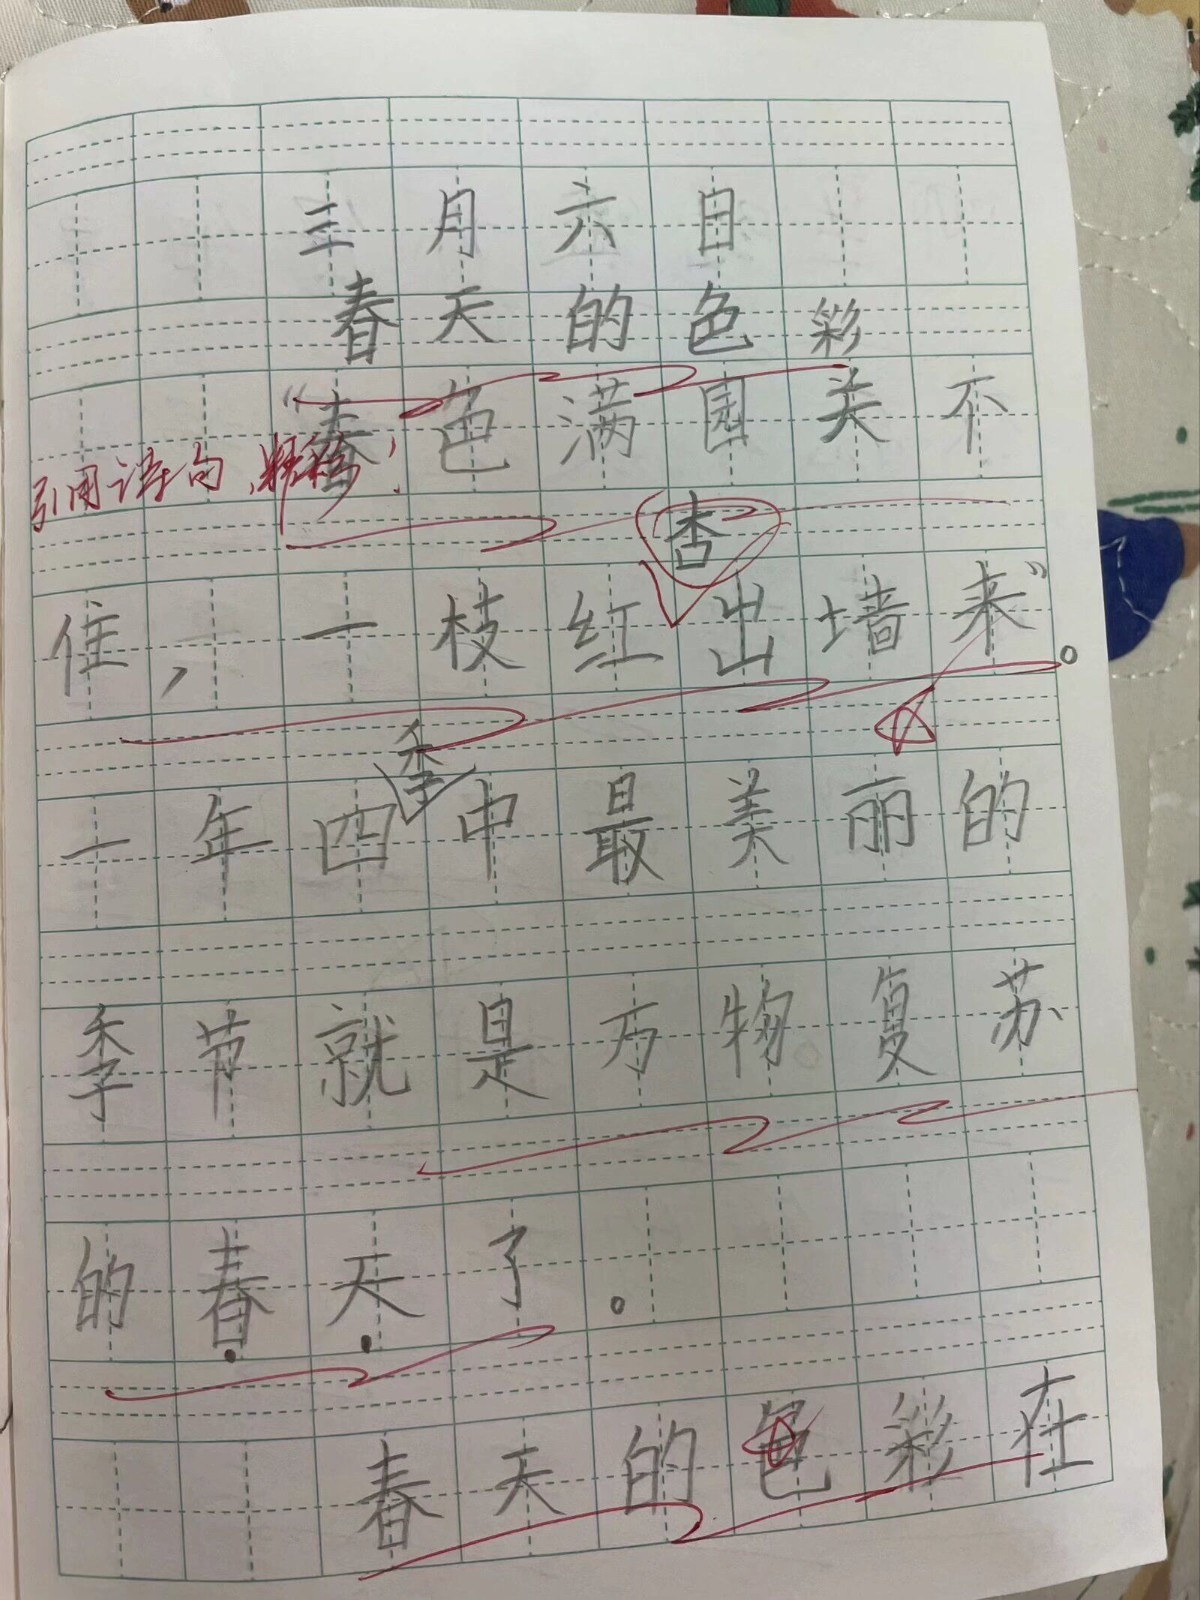 三月六日
春天的色彩
“春色满园关不
引用语句,精彩!
杏
住,一枝红出墙来”。
季
一年四中最美丽的
季节就是万物复苏
的春天了。
春天的色彩在